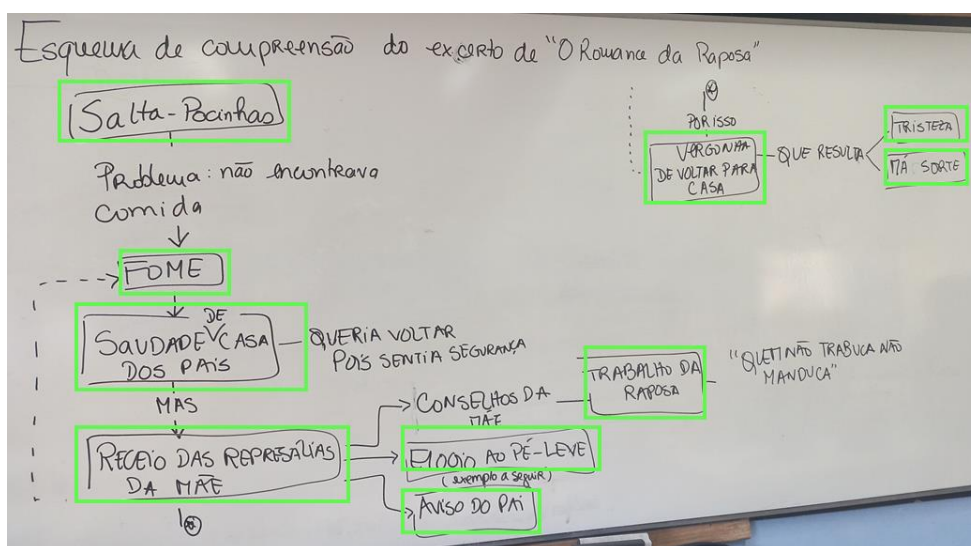 Esquema de compreensão do excerto de "O Romance da Raposa"
Salta-Pocinhas
Problema: não encontrava
comida
FOME
SAUDADE DE CASA
DOS PAIS
QUERIA VOLTAR
POIS SENTIA SEGURANÇA
MAS
RECEIO DAS REPRESÁLIAS
DA MÃE
CONSELHOS DA
MÃE
TRABALHO DA
RAPOSA
"QUEM NÃO TRABUCA NÃO
MANDUCA"
Elogio AO PÉ-LEVE
(exemplo a seguir)
AVISO DO PAI
POR ISSO
VERGONHA
DE VOLTAR PARA
CASA
QUE RESULTA
TRISTEZA
MÁ SORTE